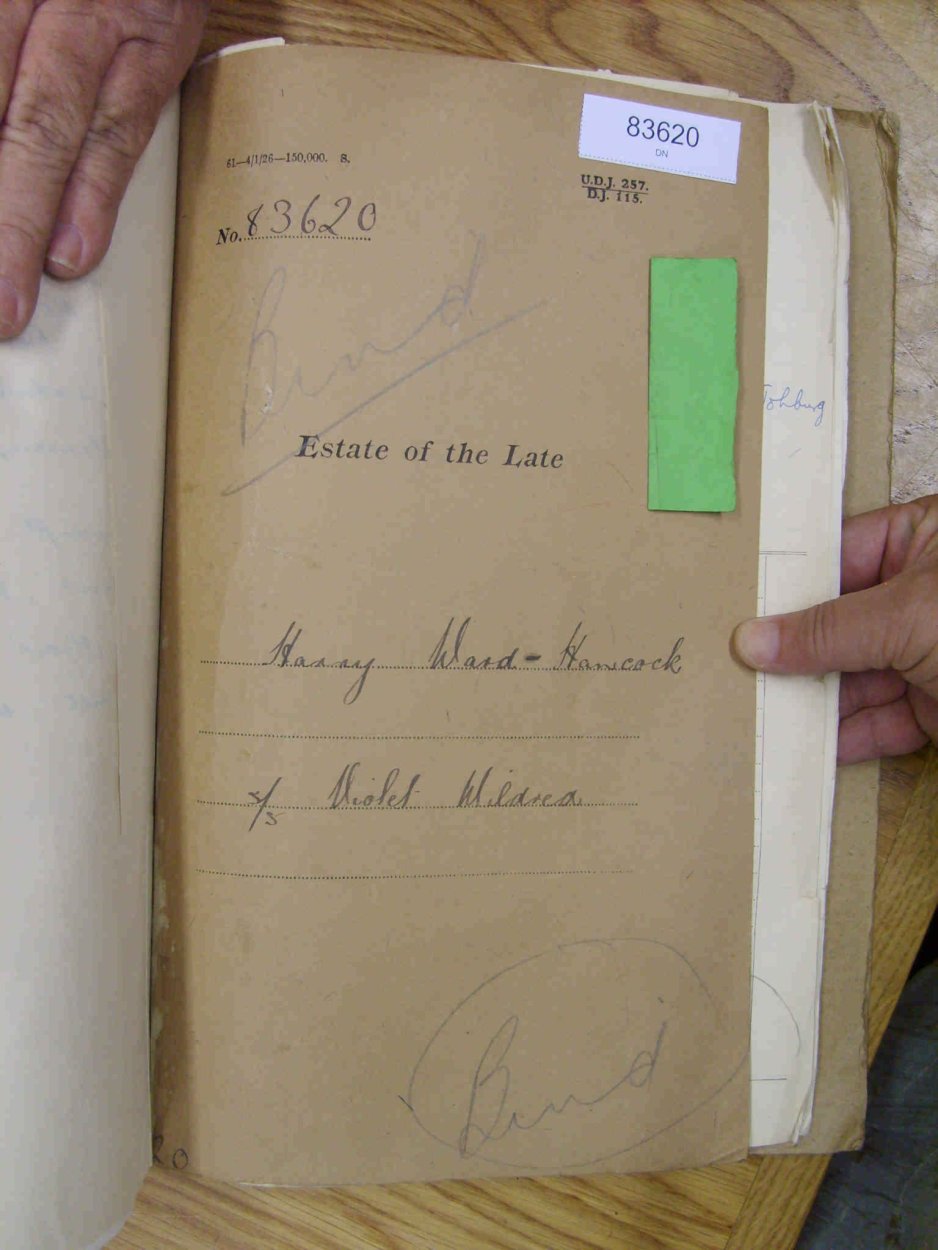 83620
DN
61—4/1/26—150,000. S.
U.D.J. 257.
D.J. 115.
No. 83620
Bind
Estate of the Late
Johburg
Harry Ward-Hancock
s/s Violet Mildred
Bind
20